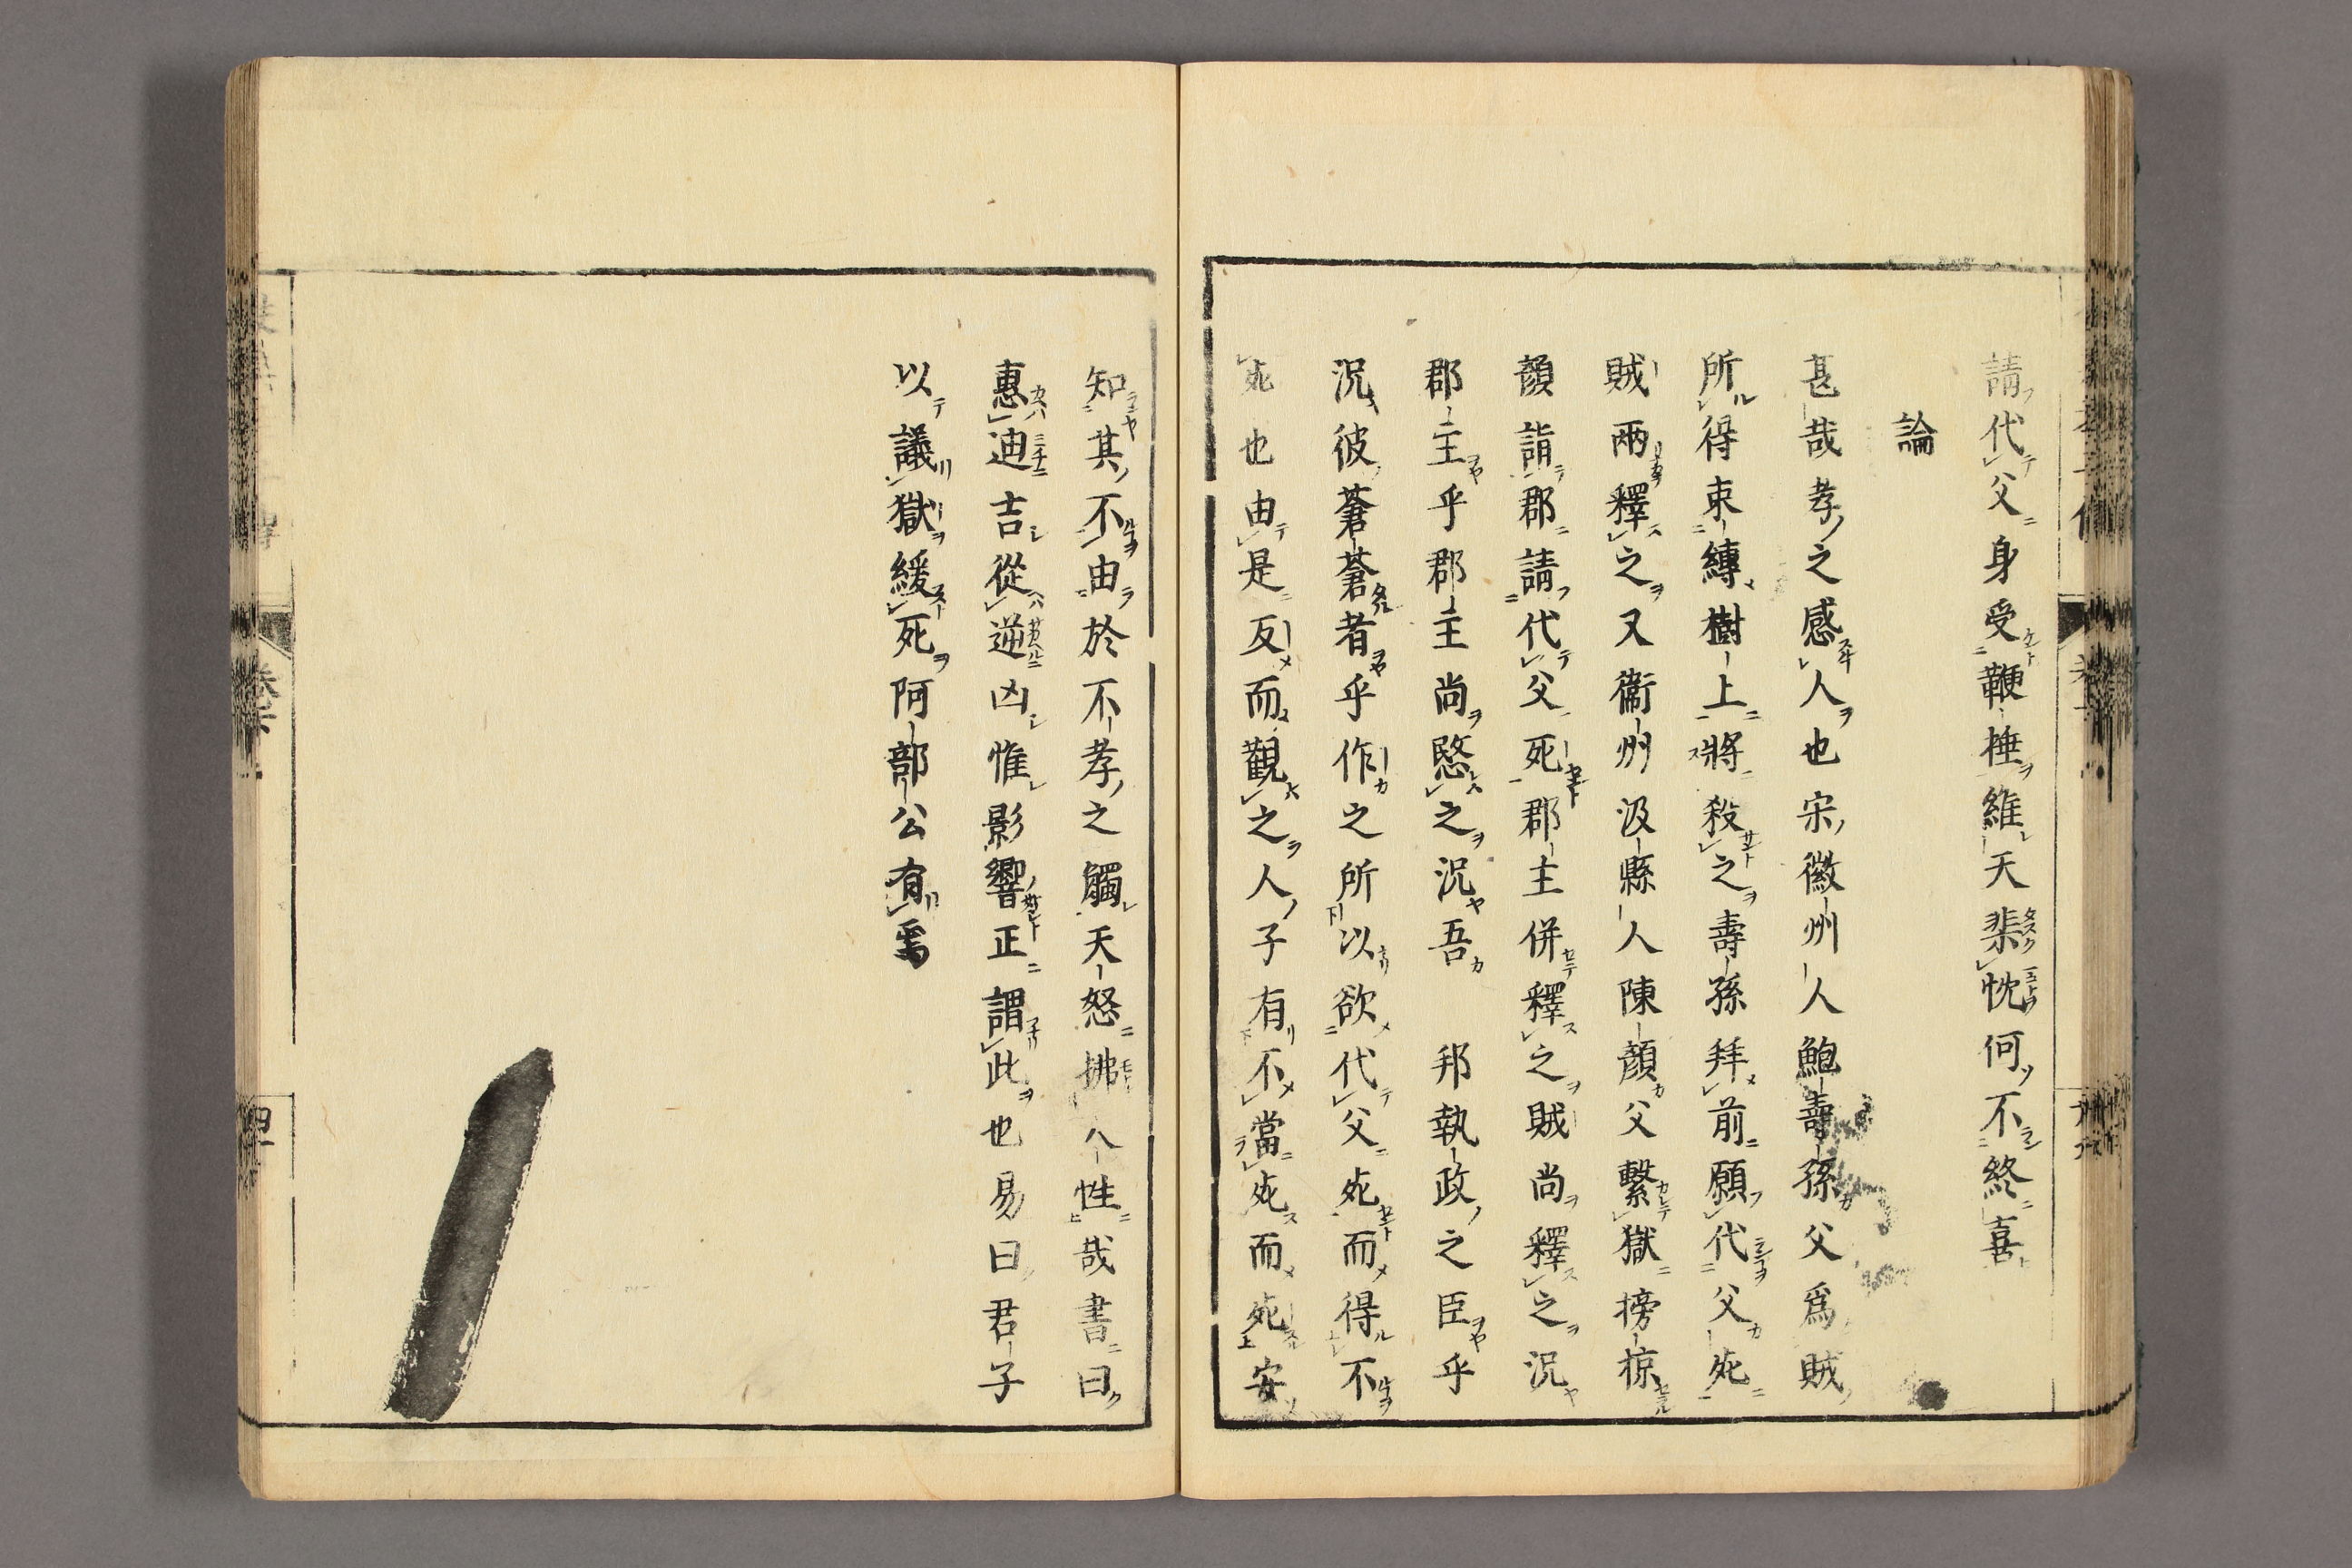 請代父身受鞭捶維天棐忱何不終喜
論
甚哉孝之感人也宋徽州人鮑壽孫父爲賊
所得束縛樹上將殺之壽孫拜前願代父死
賊兩釋之又衞州汲縣人陳顏父繫獄搒掠
顏詣郡請代父死郡主併釋之賊尚釋之況
郡主乎郡主尚愍之況吾邦執政之臣乎
況彼蒼蒼者乎作之所以欲代父死而得不
死也由是反而觀之人子有不當死而死安
知其不由於不孝之觸天怒拂人性哉書曰
惠迪吉從逆凶惟影響正謂此也易曰君子
以議獄緩死阿部公有焉